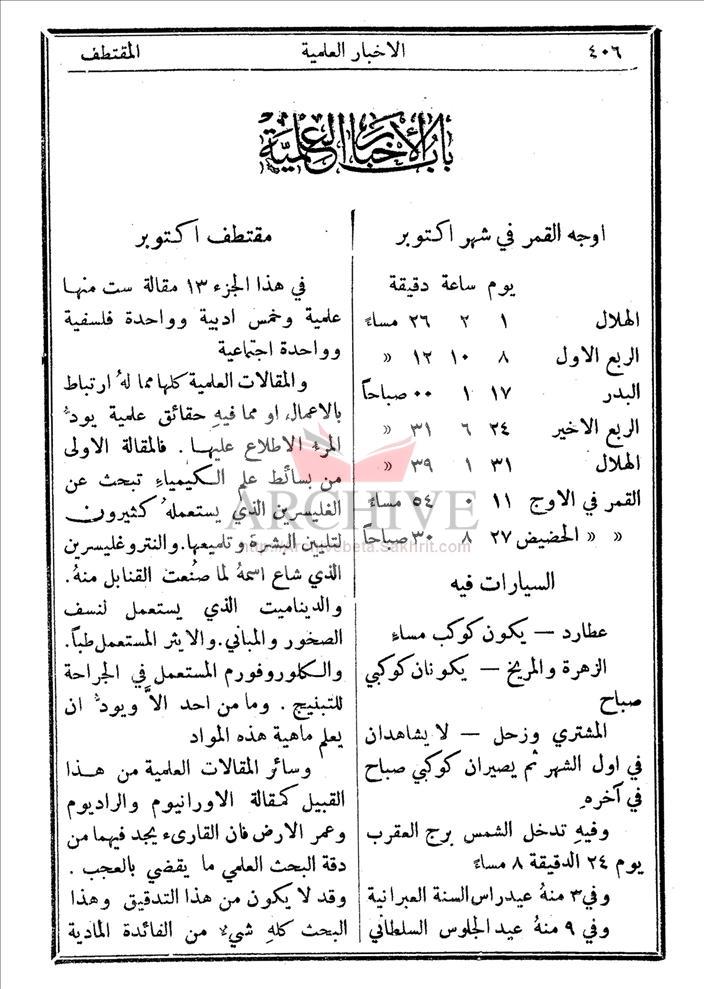 ٤٠٦ الاخبار العلمية المقتطف
باب الأخبار العلمية
اوجه القمر في شهر اكتوبر
يوم ساعة دقيقة
الهلال ١ ٢ ٢٦ مساءً
الربع الاول ٨ ١٠ ١٢ «
البدر ١٧ ١ ٠٠ صباحاً
الربع الاخير ٢٤ ٦ ٣١ «
الهلال ٣١ ١ ٣٩ «
القمر في الاوج ١١ ٠ ٥٤ مساءً
« « الحضيض ٢٧ ٨ ٣٠ صباحاً
السيارات فيه
عطارد — يكون كوكب مساء
الزهرة والمريخ — يكونان كوكبي
صباح
المشتري وزحل — لا يشاهدان
في اول الشهر ثم يصيران كوكبي صباح
في آخره
وفيه تدخل الشمس برج العقرب
يوم ٢٤ الدقيقة ٨ مساءً
وفي ٣ منهُ عيد راس السنة العبرانية
وفي ٩ منهُ عيد الجلوس السلطاني
مقتطف اكتوبر
في هذا الجزء ١٣ مقالة ست منها
علمية وخمس ادبية وواحدة فلسفية
وواحدة اجتماعية
والمقالات العلمية كلها مما لهُ ارتباط
بالاعمال او مما فيهِ حقائق علمية يودُّ
المرء الاطلاع عليها . فالمقالة الاولى
من بسائط علم الكيمياء تبحث عن
الغليسرين الذي يستعملهُ كثيرون
لتليين البشرة وتلميعها. والنتروغليسرين
الذي شاع اسمهُ لما صُنعت القنابل منهُ.
والديناميت الذي يستعمل لنسف
الصخور والمباني. والايثر المستعمل طبّاً.
والكلوروفورم المستعمل في الجراحة
للتبنيج . وما من احد الاَّ ويودُّ ان
يعلم ماهية هذه المواد
وسائر المقالات العلمية من هذا
القبيل كمقالة الاورانيوم والراديوم
وعمر الارض فان القارىء يجد فيهما من
دقة البحث العلمي ما يقضي بالعجب .
وقد لا يكون من هذا التدقيق وهذا
البحث كلهِ شيء من الفائدة المادية
ARCHIVE